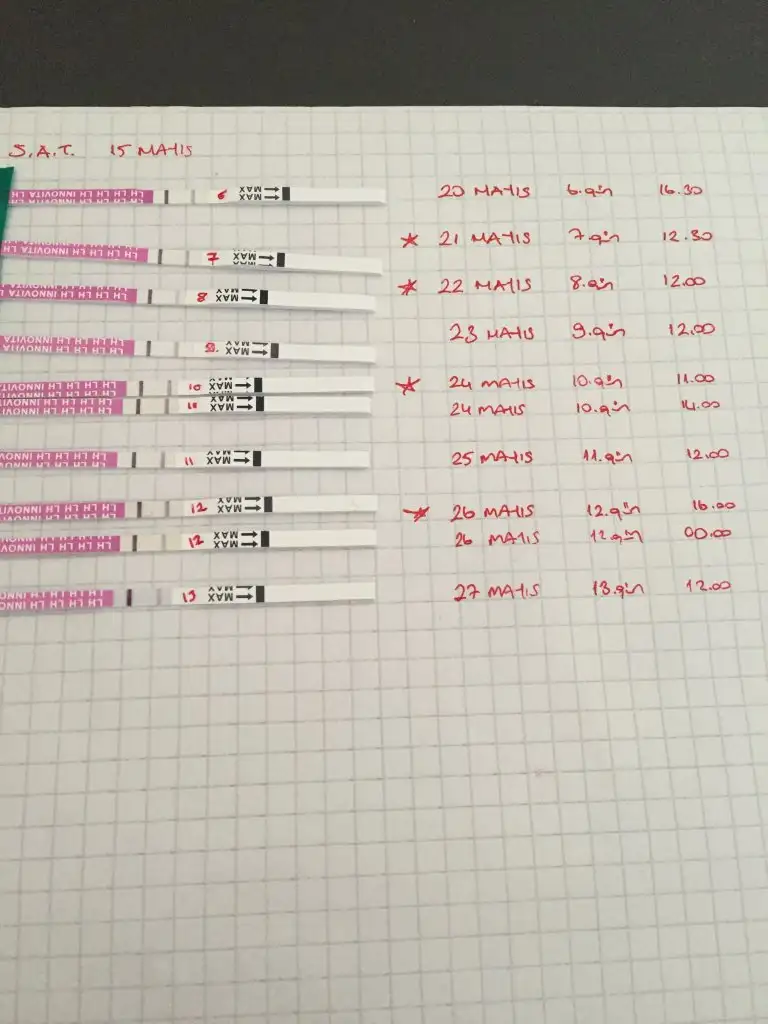 S.A.T. 15 MATIS
LH LH LH LH INNOVITA LH 6 MAX 20 MATIS 6.gün 16.30
LH LH LH LH INNOVITA LH 7 MAX ★ 21 MATIS 7.gün 12.30
LH LH LH LH INNOVITA 8 MAX ★ 22 MATIS 8.gün 12.00
LH LH LH LH INNOVITA 9. MAX 23 MATIS 9.gün 12.00
LH LH LH LH INNOVITA 10 MAX ★ 24 MATIS 10.gün 11.00
LH LH LH LH INNOVI 10 MAX 24 MATIS 10.gün 14.00
LH LH LH LH INNOVI 11 MAX 25 MATIS 11.gün 12.00
LH LH LH LH INNOVI 12 MAX ★ 26 MATIS 12.gün 16.00
LH LH LH LH INNOVI 12 MAX 26 MATIS 12.gün 00.00
LH LH LH LH INNO 13 MAX 27 MATIS 13.gün 12.00